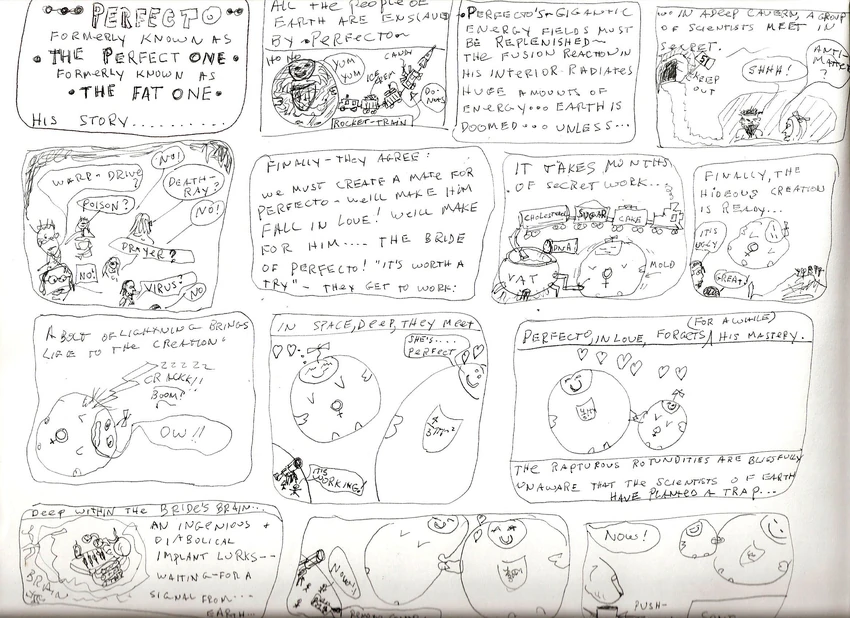 PERFECTO
FORMERLY KNOWN AS
• THE PERFECT ONE •
FORMERLY KNOWN AS
• THE FAT ONE •
HIS STORY..........
ALL THE PEOPLE OF
EARTH ARE ENSLAVED
BY •PERFECTO•
HO HO
YUM
YUM
ICE
CREAM
CANDY
DO-
NUTS
ROCKET-TRAIN
•PERFECTO'S• GIGANTIC
ENERGY FIELDS MUST
BE REPLENISHED~
THE FUSION REACTION IN
HIS INTERIOR RADIATES
HUGE AMOUNTS OF
ENERGY... EARTH IS
DOOMED... UNLESS...
IN A DEEP CAVERN, A GROUP
OF SCIENTISTS MEET IN
SECRET.
KEEP
OUT
SHHH!
ANTI-
MATTER
?
WARP-DRIVE
?
NO!
DEATH-
RAY?
POISON?
NO!
PRAYER?
NO!
VIRUS?
NO
FINALLY-THEY AGREE:
WE MUST CREATE A MATE FOR
PERFECTO- WE'LL MAKE HIM
FALL IN LOVE! WE'LL MAKE
FOR HIM.... THE BRIDE
OF PERFECTO! "IT'S WORTH A
TRY"- THEY GET TO WORK:
IT TAKES MONTHS
OF SECRET WORK...
CHOLESTEROL
SUGAR
CAKE
DNA
VAT
MOLD
FINALLY, THE
HIDEOUS CREATION
IS READY...
IT'S
UGLY
GREAT!
A BOLT OF LIGHTNING BRINGS
LIFE TO THE CREATION:
ZZZZZ
CRACKK!!
BOOM!
OW!!
IN SPACE, DEEP, THEY MEET
SHE'S....
PERFECT
IT'S
WORKING!
(FOR A WHILE)
PERFECTO, IN LOVE, FORGETS HIS MASTERY.
THE RAPTUROUS ROTUNDITIES ARE BLISSFULLY
UNAWARE THAT THE SCIENTISTS OF EARTH
HAVE PLANTED A TRAP...
DEEP WITHIN THE BRIDE'S BRAIN...
AN INGENIOUS +
DIABOLICAL
IMPLANT LURKS--
WAITING-FOR A
SIGNAL FROM...
EARTH...
BRAIN
NOW!!
NOW!
PUSH-